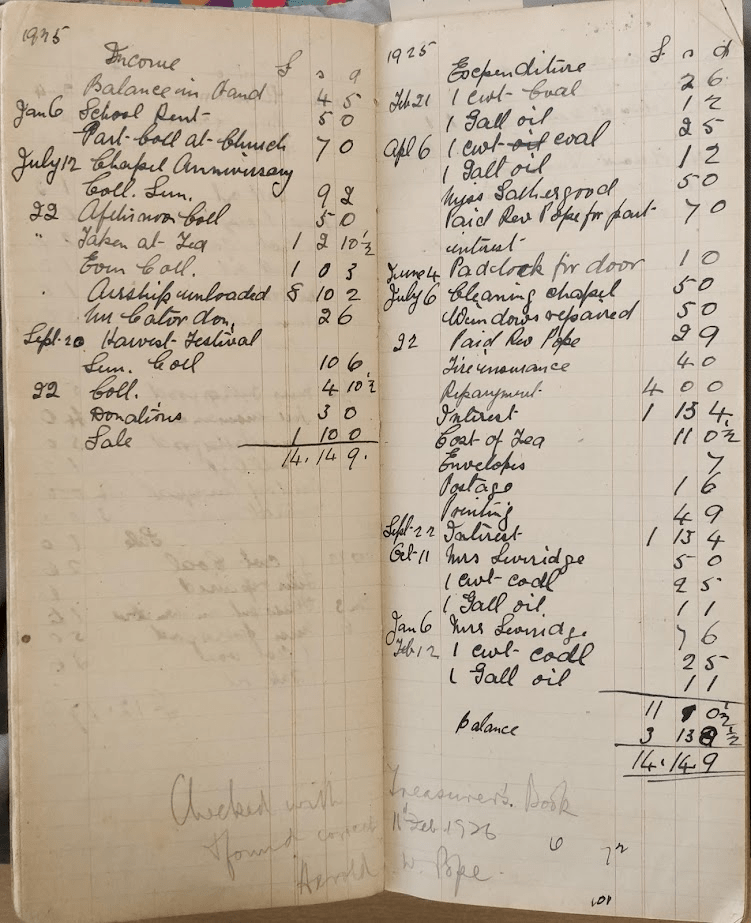 1925
Income £ s d
Balance in Hand 4 5
Jan 6 School Rent 5 0
Part Coll at Church 7 0
July 12 Chapel Anniversary
Coll. Sun. 9 2
22 Afternoon Coll 5 0
" Taken at Tea 1 2 10½
Even Coll. 1 0 3
Airship unloaded 8 10 2
Mr Cator don. 2 6
Sept. 20 Harvest Festival
Sun. Coll 10 6
22 Coll. 4 10½
Donations 3 0
Sale 1 10 0
14. 14 9.
1925
Expenditure £ s d
Feb 21 1 cwt Coal 2 6
1 Gall oil 1 2
Apl 6 1 cwt oil coal 2 5
1 Gall oil 1 2
Miss Sathergood 5 0
Paid Rev Pope for part 7 0
interest
June 4 Padlock for door 1 0
July 6 Cleaning chapel 5 0
Windows repaired 5 0
22 Paid Rev Pope 2 9
Fire insurance 4 0
Repayment 4 0 0
Interest 1 13 4.
Cost of Tea 11 0½
Envelopes 7
Postage 1 6
Printing 4 9
Sept 22 Interest 1 13 4
Oct 11 Mrs Liverridge 5 0
1 cwt coal 2 5
1 Gall oil 1 1
Jan 6 Mrs Liverridge 7 6
Feb 12 1 cwt coal 2 5
1 Gall oil 1 1
11 1 0½
Balance 3 13 8½
14. 14. 9
Checked with Treasurer's Book
& found correct 11 Feb 1926
Harold W. Pope.